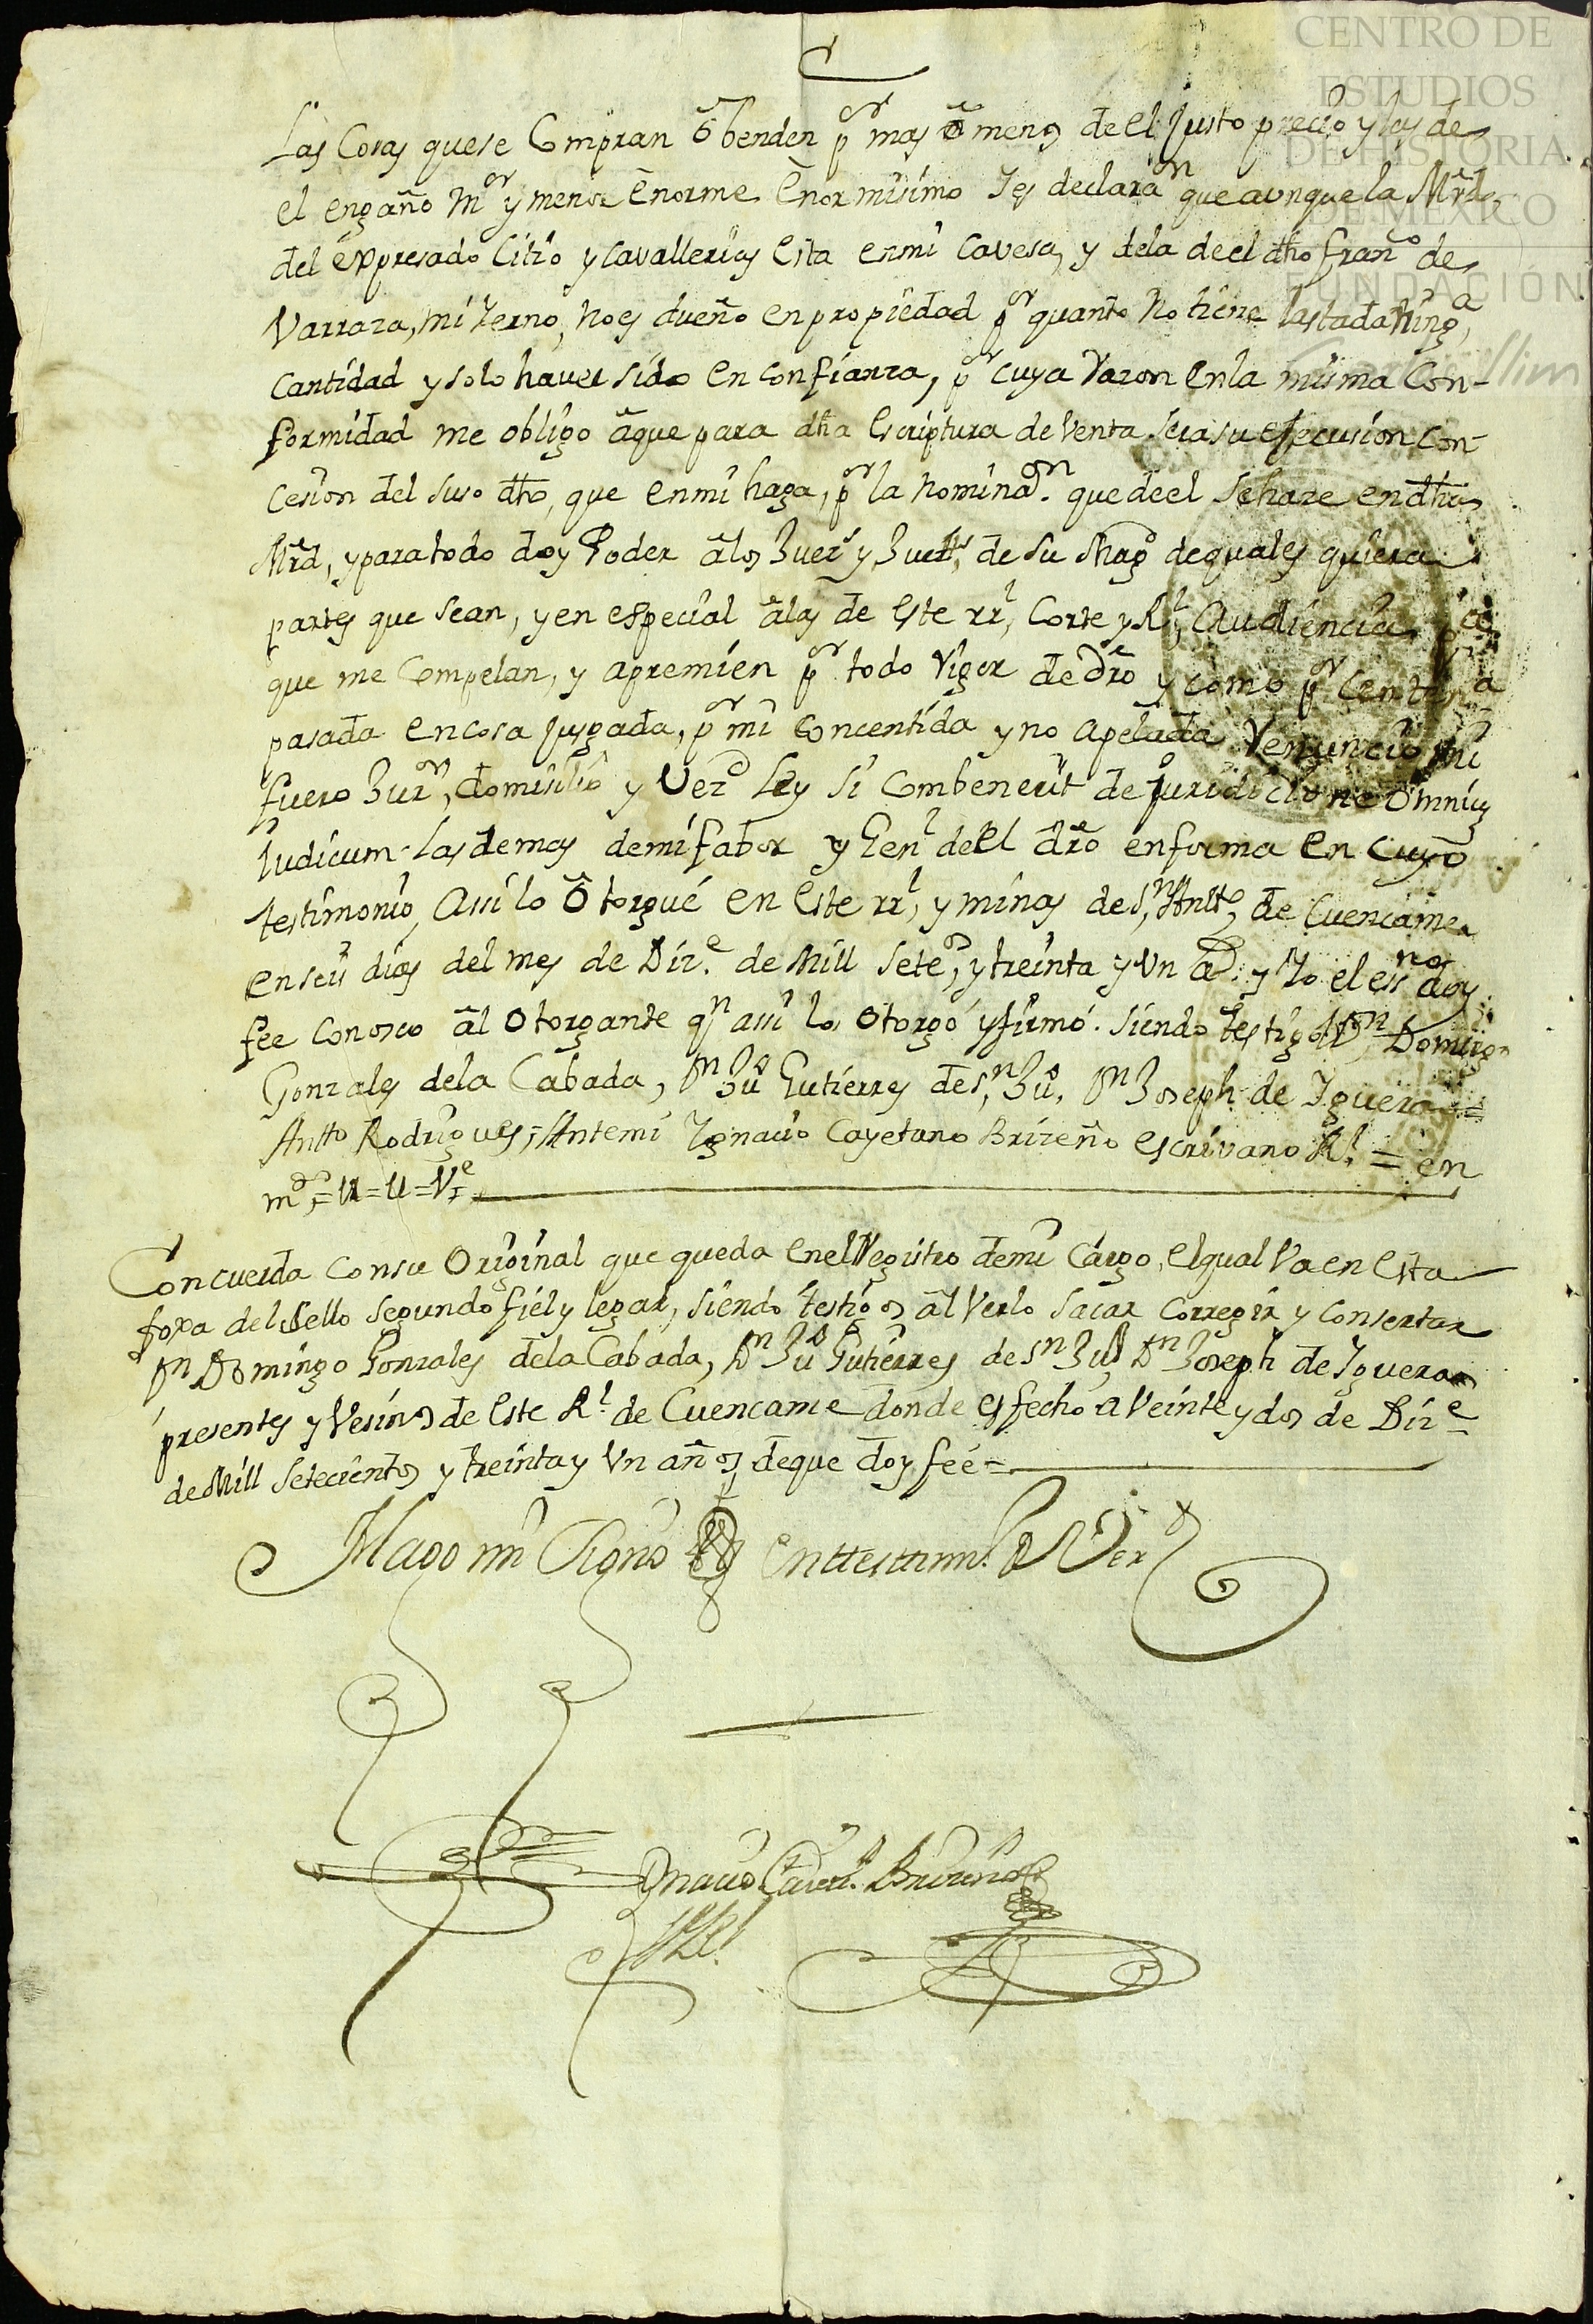 CENTRO DE
ESTUDIOS
DE HISTORIA
DE MÉXICO
FUNDACIÓN
Las Cosas que se Compran õ benden p.or mas õ menos de el Justo precio y las de
el engaño M.or y menor Enorme Enormisimo Y es declara.on que aunque la Mrd,
del expresado Citio y Cavallerias Esta en mi Cavesa, y de la de el dho Fran.co de
Varraza, mi Yerno, no es dueño en propiedad p.r quanto no tiene lastada ning.a
Cantidad y solo haver sido en confianza, p.r cuya Razon En la misma Con-
formidad me obligo ã que para dha Escriptura de Venta sera su efecusion Con-
cesion del suso dho, que en mi haga, p.r la nomina.on que de el se haze en dha
Mrd, y para todo doy Poder ã los Juez.s y Just.s de Su Mag.d de quales quiera
partes que sean, y en especial ã las de este rr.l Corte y R.l Audiencia p.a
que me Compelan, y apremien p.r todo Rigor de Dro y como p.r Centencia
pasada en cosa Jusgada, p.r mi Concentida y no apelada Renuncio mi
fuero Jur.on, domisilio y Vez.d Ley Si Combenerit de Juridicione Omnium
Iudicum las demas de mi fabor y Gen.l de el dro en forma En Cuyo
testimonio, Assi lo Otorgué en Este rr.l y minas de S.n Antt.o de Cuencame
en seis dias del mes de Diz.e de Mill Setes.os y treinta y Un a.s y Yo el ess.no doy
fee Conosco al Otorgante q.n assi lo Otorgó y firmó. Siendo testigos D.n Domingo
Gonzales de la Cabada, D.n Ju.o Gutierres de S.n Ju.o D.n Joseph de Ygueras =
Antto Rodrigues = Ante mi Ygnacio Cayetano Brizeño escrivano R.l = en
m.do = u = u = V.e
Concuerda Con su Original que queda en el Registro de mi Cargo, el qual Va en Esta
foxa del Sello Segundo fiel y legar, siendo testigos al Verlo Sacar Corregir y Consertar
D.n Domingo Gonzales de la Cabada, D.n Ju.o Gutierres de S.n Ju.o D.n Joseph de Ygueras
presentes y Vesinos de Este R.l de Cuencame donde es fecho a Veinte y dos de Diz.e
de Mill Setecientos y treinta y Un años, de que doy feé =
Hago mi Signo En testim.o de Verd
Ygnacio Cayet.o Brizeño
SS.no R.l